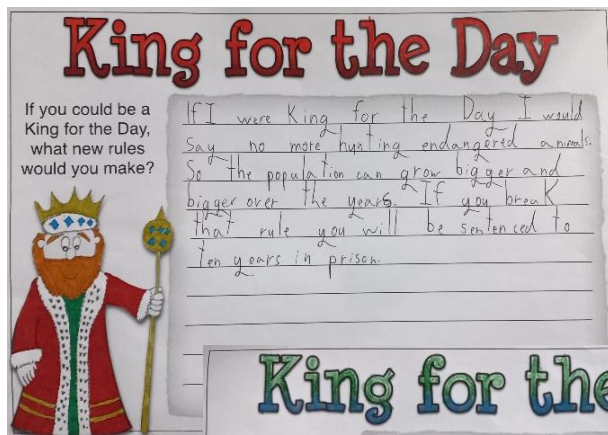 King for the Day
If you could be a
King for the Day,
what new rules
would you make?
If I were King for the Day I would
Say no more hunting endangered animals.
So the population can grow bigger and
bigger over the years. If you break
that rule you will be sentenced to
ten years in prison.
King for the